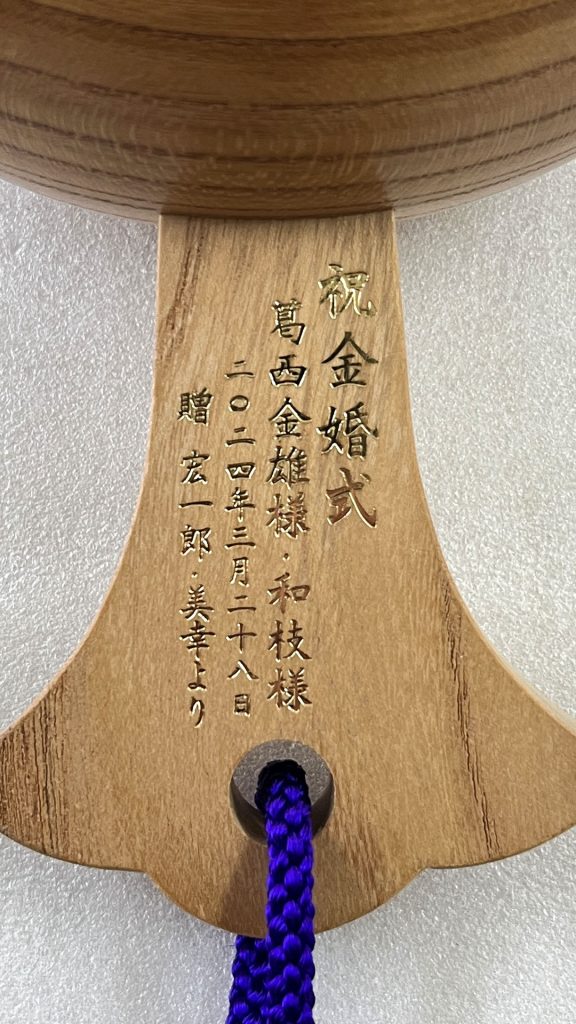 祝金婚式
葛西金雄様・和枝様
二〇二四年三月二十八日
贈 宏一郎・美幸より